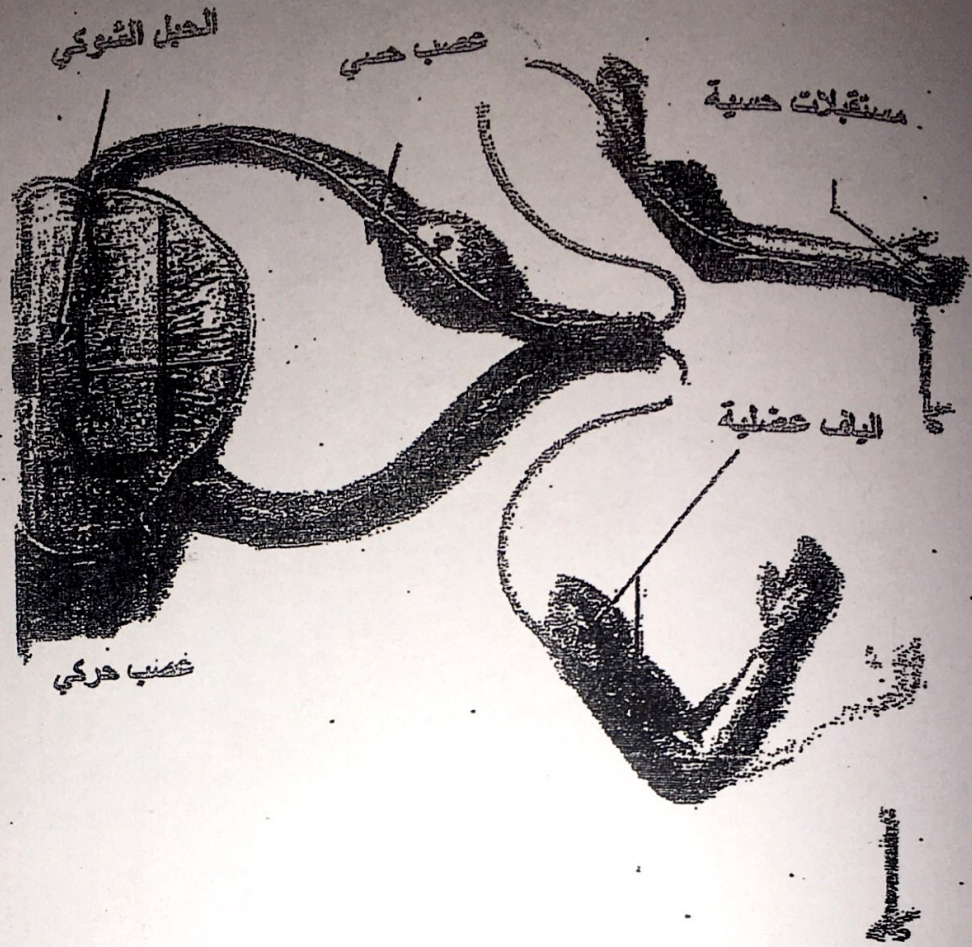 الحبل الشوكي
عصب حسي
مستقبلات حسية
الياف عضلية
عصب حركي